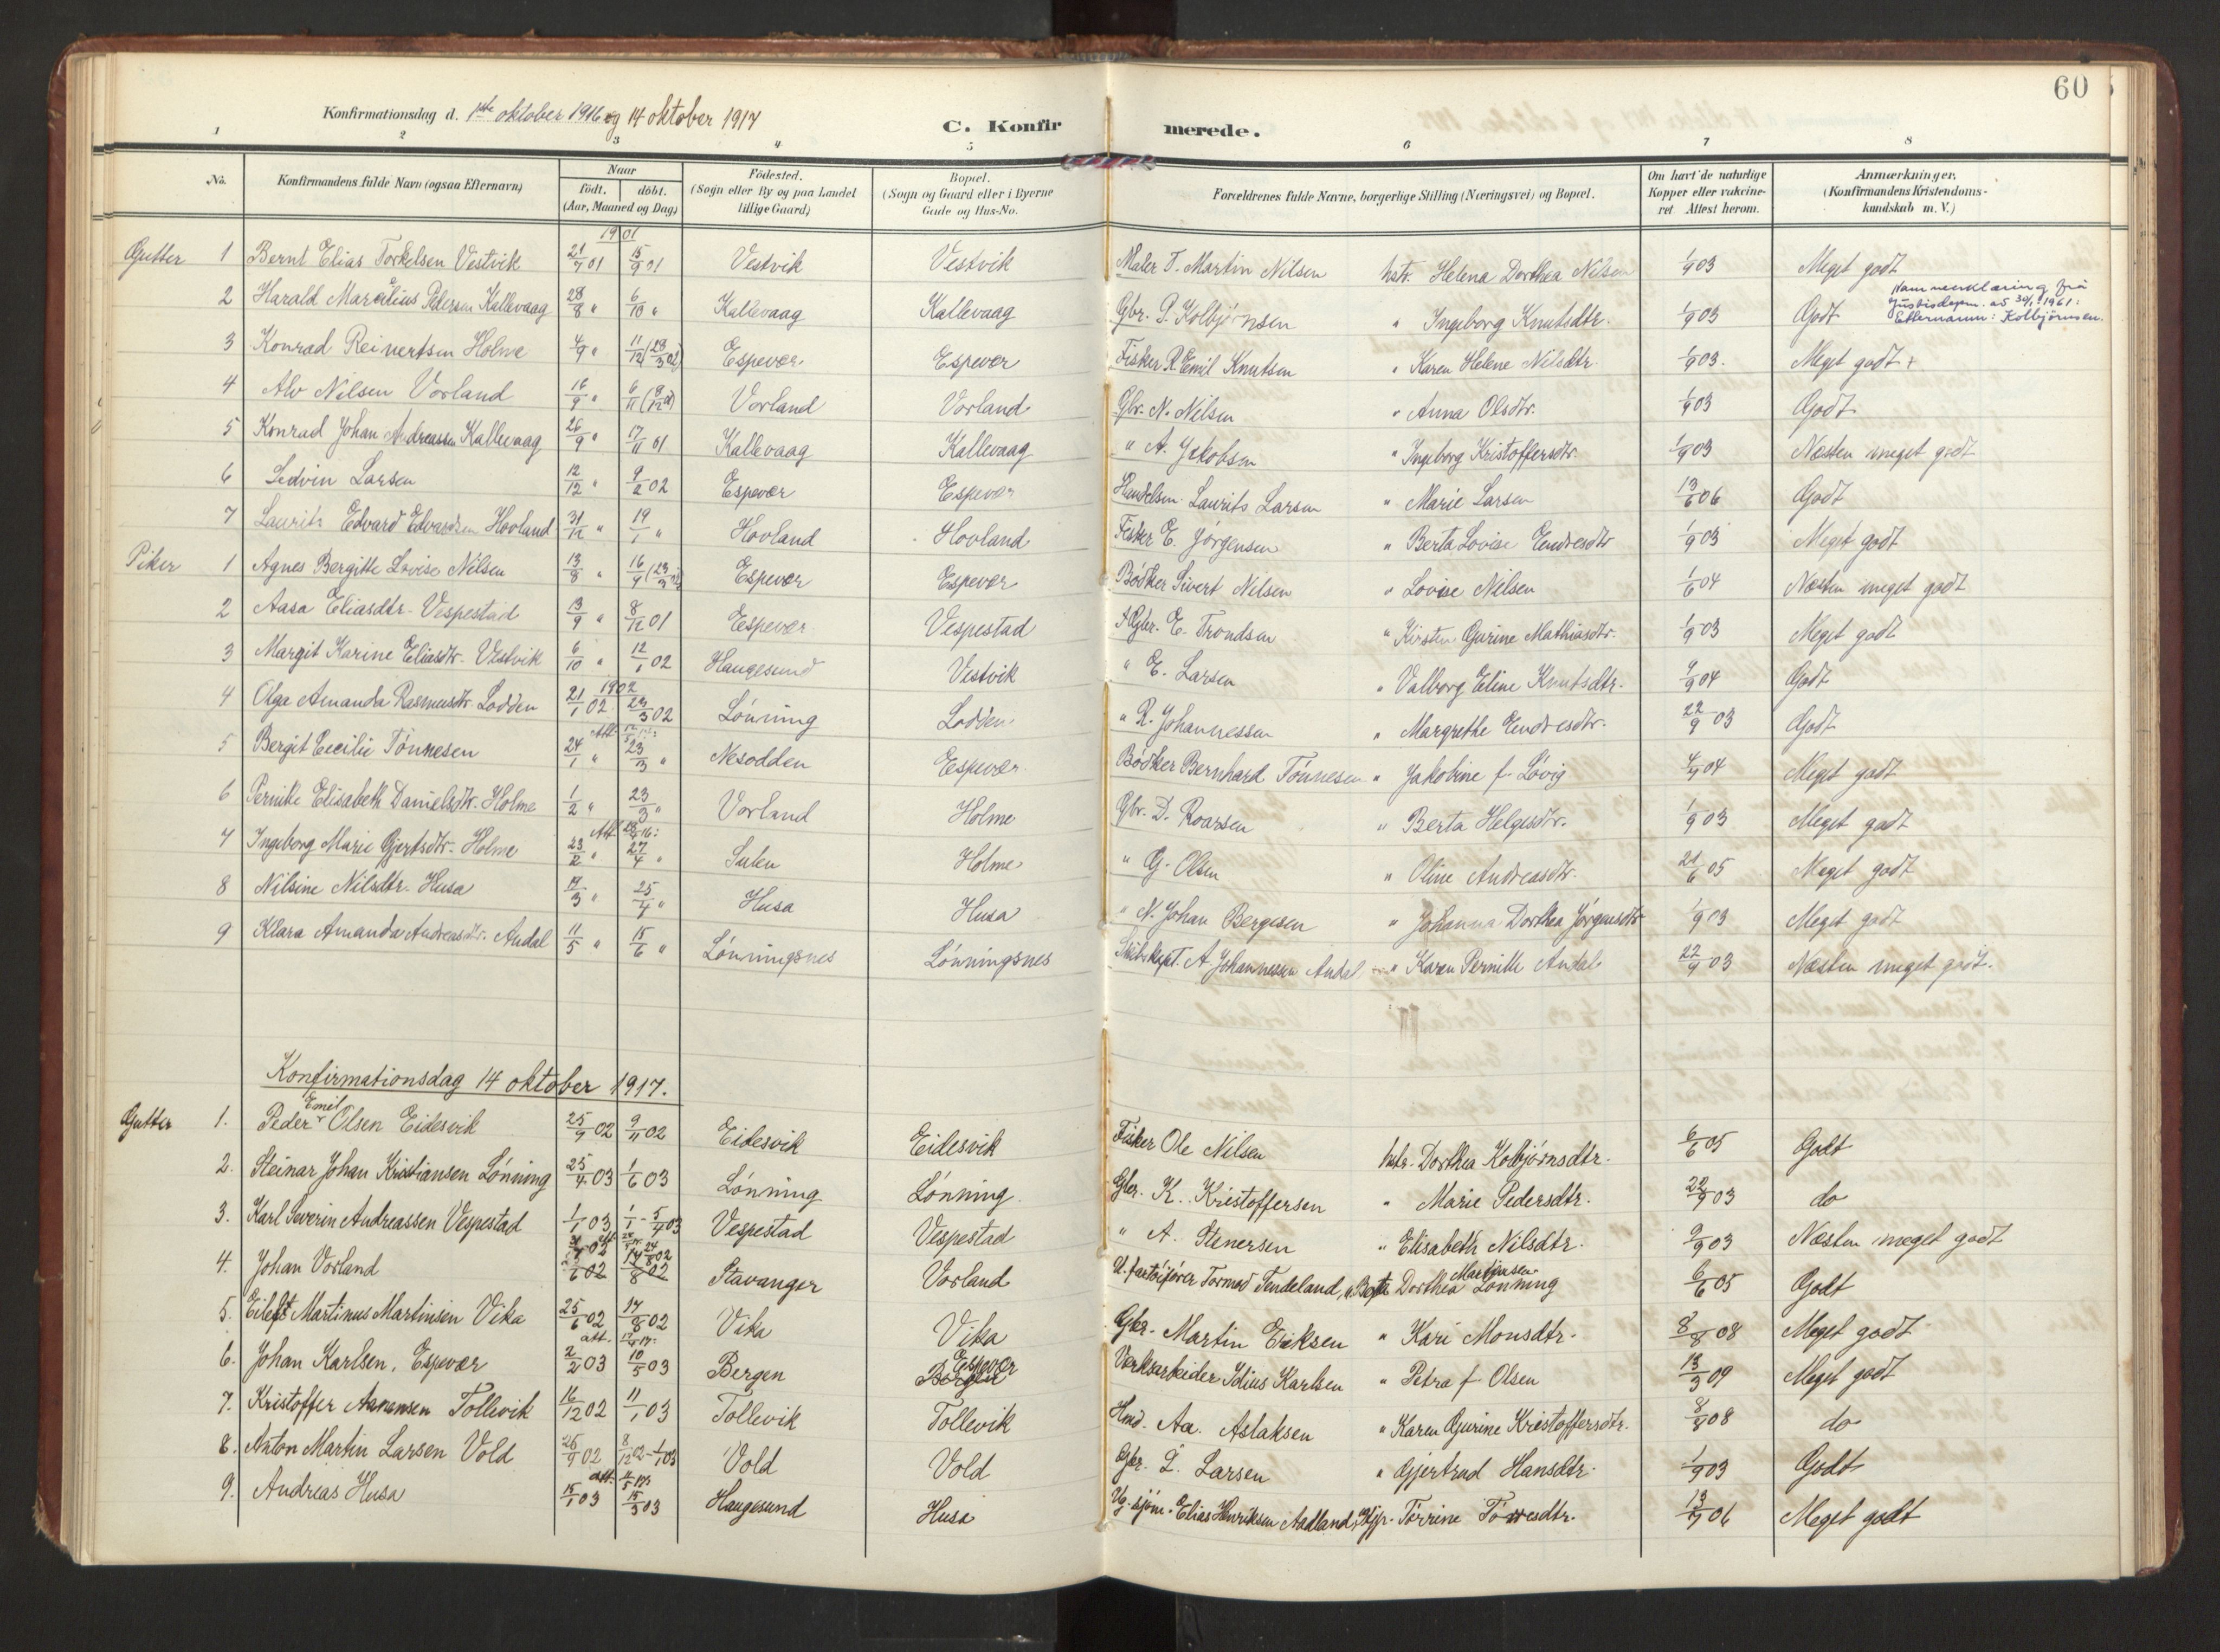 60
Konfirmationsdag d. 1ste oktober 1916 og 14 oktober 1917
C. Konfirmerede.
1 2 3 4 5 6 7 8
No. Konfirmandens fulde Navn (ogsaa Efternavn) Naar født. døbt. (Aar, Maaned og Dag) Fødested. (Sogn eller By og paa Landet tillige Gaard) Bopæl. (Sogn og Gaard eller i Byerne Gade og Hus-No. Forældrenes fulde Navne, borgerlige Stilling (Næringsvei) og Bopæl. Om havt de naturlige Kopper eller vakcineret Attest herom. Anmærkninger. (Konfirmandens Kristendomskundskab m. V.)
1901
Gutter 1 Bernt Elias Torkelsen Vestvik 21/7 01 15/9 01 Vestvik Vestvik Maler T. Martin Nilsen hstr. Helena Dorthea Nilsen 1/9 03 Meget godt
2 Harald Marcelius Pedersen Kallevaag 28/8 " 6/10 " Kallevaag Kallevaag Gbr. P. Kolbjørnsen " Ingeborg Knutsdtr. 1/9 03 Godt
Namneerklæring frå Justisdepm. av 30/1 1961: Etternamn: Kolbjørnsen.
3 Konrad Reinertsen Holme 4/9 " 11/12 (23/3 02) Espevær Espevær Fisker R. Emil Knutsen " Karen Helene Nilsdtr. 1/9 03. Meget godt +
4 Alv Nilsen Vorland 16/9 " 6/11 Vorland Vorland Gbr. N. Nilsen " Anna Olsdtr. 1/9 03 Godt
5 Konrad Johan Andreassen Kallevaag 26/9 " 17/11 01 Kallevaag Kallevaag " A. Jakobsen " Ingeborg Kristoffersdtr. 1/9 03 Næsten meget godt
6 Ledvin Larsen 12/12 " 9/2 02 Espevær Espevær Handelsm. Laurits Larsen " Marie Larsen 13/6 06 Godt
7 Laurits Edvard Edvardsen Hovland 31/12 " 19/1 " Hovland Hovland Fisker E. Jørgensen " Berta Lovise Endresdtr 1/9 03 Meget godt
Piker 1 Agnes Bergitte Lovise Nilsen 13/8 " 16/9 (23/3 02) Espevær Espevær Bødker Sivert Nilsen " Lovise Nilsen 1/6 04 Næsten meget godt
2 Aasa Eliasdtr. Vespestad 13/9 " 8/12 01 Espevær Vespestad Gbr. E. Trondsen " Kirsten Gurine Mathiasdtr. 1/9 03 Meget godt
3 Margit Karine Eliasdtr. Vestvik 6/10 " 12/1 02 Haugesund Vestvik " E. Larsen " Valborg Eline Knutsdtr. 9/9 04 Godt
1902
4 Olga Amanda Rasmusdtr. Lodden 21/1 02 23/3 02 Lønning Lodden " R. Johannessen " Margrethe Endresdtr. 22/9 03 Godt
5 Bergit Cecilie Tønnesen 24/1 " 23/3 " Nesodden Espevær Bødker Bernhard Tønnesen " Jakobine f. Løvig 4/9 04 Meget godt
6 Pernille Elisabeth Danielsdtr. Holme 1/2 " 23/3 " Vorland Holme Gbr. D. Roarsen " Berta Helgesdtr. 1/9 03 Meget godt
7 Ingeborg Marie Gjertsdtr. Holme 23/2 " 27/4 " Sulen Holme " G. Olsen " Oline Andreasdtr. 21/6 05 Meget godt
8 Nilsine Nilsdtr. Husa 19/3 " 25/4 " Husa Husa " N. Johan Bergesen " Johanna Dorthea Jørgensdtr 1/9 03 Meget godt
9 Klara Amanda Andreasdtr. Andal 11/5 " 15/6 " Lønningsnes Lønningsnes Skibskapt. A. Johannessen Andal " Karen Pernille Andal 22/9 03 Næsten meget godt.
Konfirmationsdag 14 oktober 1917.
Gutter 1. Peder Emil Olsen Eidesvik 25/9 02 9/11 02 Eidesvik Eidesvik Fisker Ole Nilsen hstr. Dorthea Kolbjørnsdtr. 6/6 05 Godt
2. Steinar Johan Kristiansen Lønning 25/4 03 1/6 03 Lønning Lønning. Gbr. K. Kristoffersen " Marie Pedersdtr. 22/9 03 do
3. Karl Severin Andreassen Vespestad 1/1 03 1/1 - 5/4 03 Vespestad Vespestad " A. Stenersen " Elisabeth Nilsdtr. 9/9 03 Næsten meget godt
4. Johan Vorland Stavanger Vorland U. fartøifører Tormod Tendeland, u. Berta Dorthea Martinsen Lønning 6/6 05 Godt
5. Eileft Martinus Martinsen Vika 25/6 02 17/8 02 Vika Vika Gbr. Martin Eriksen " Kari Monsdtr. 8/8 08 Meget godt
6. Johan Karlsen, Espevær 2/2 03 10/5 03 Bergen Espevær Verksarbeider Julius Karlsen " Petra f. Olsen 13/3 09 Meget godt
7. Kristoffer Aanensen Tollevik 16/12 02 11/1 03 Tollevik Tollevik Hmd. Aa. Aslaksen " Karen Gurine Kristoffersdtr. 8/8 08 do
8. Anton Martin Larsen Vold 26/9 02 8/12 02 - 1/1 03 Vold Vold Gbr. L. Larsen " Gjertrud Hansdtr. 1/9 03 Godt
9. Andreas Husa 15/1 03 15/3 03 Haugesund Husa Ug. sjøm. Elias Henriksen Aadland, Pige Torrine Tørresdtr. 13/7 06 Meget godt